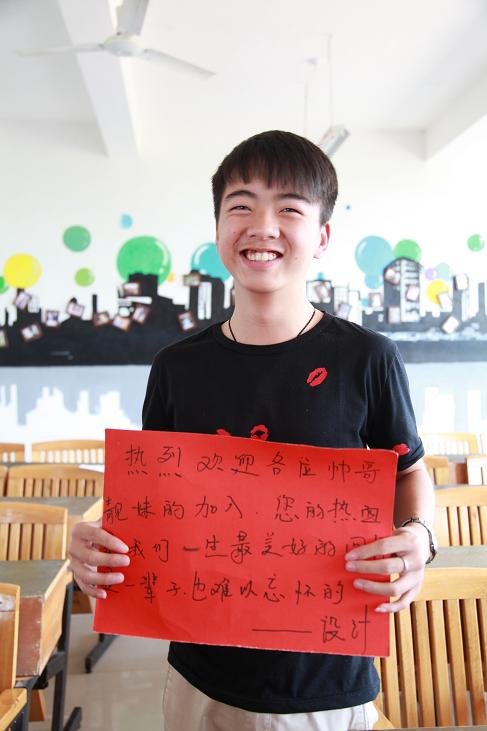 热烈欢迎各位帅哥
靓妹的加入.您的热血
我们一生最美好的回
一辈子.也难以忘怀的
——设计